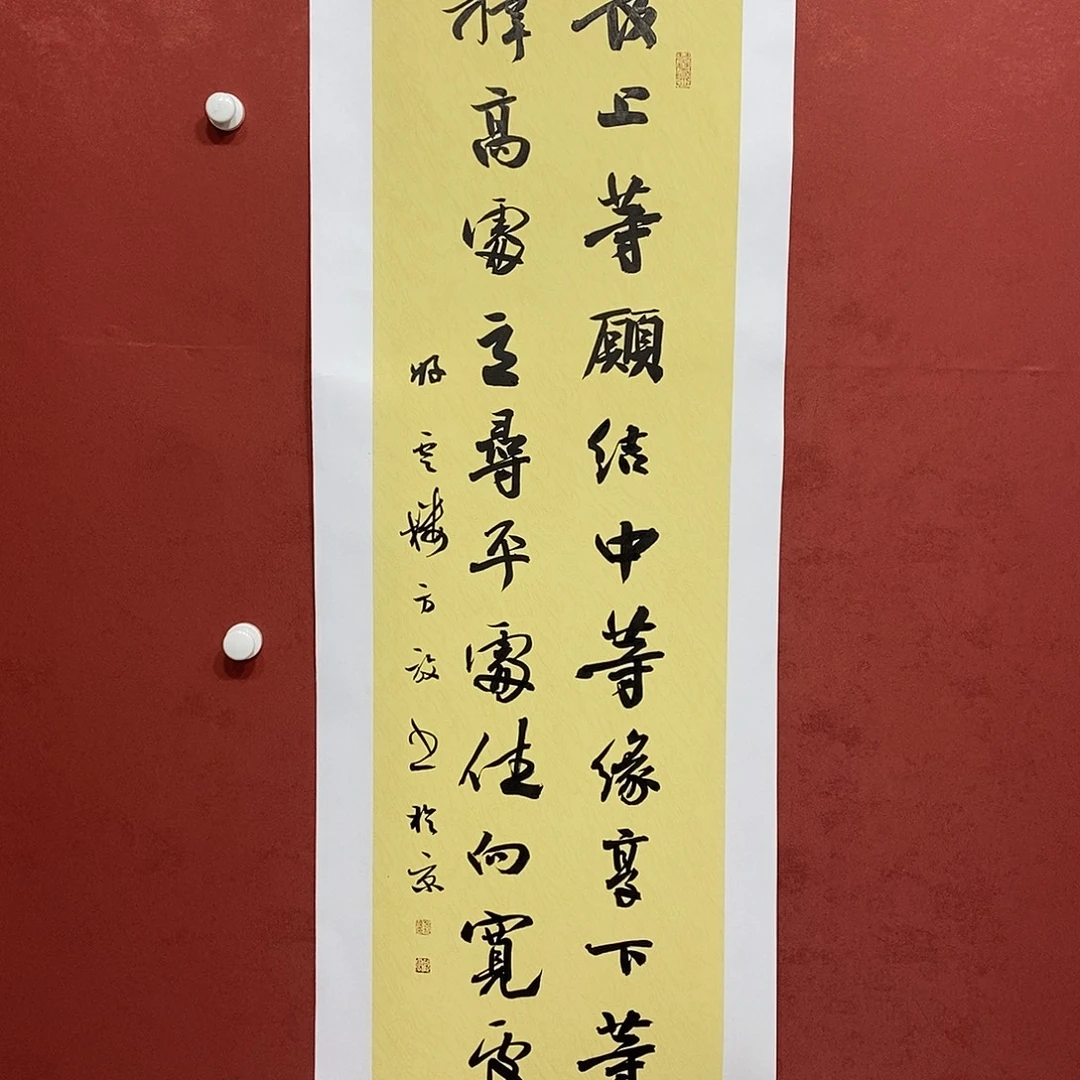 發上等願結中等緣享下等
擇高處立尋平處住向寬處
云樓方 书於京